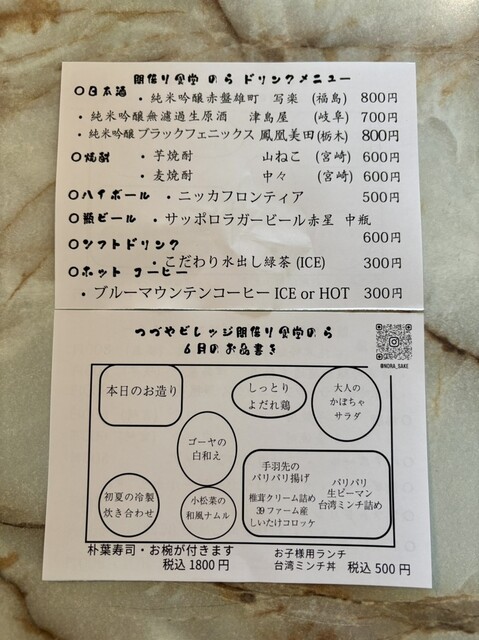 間借り食堂 のら ドリンクメニュー
○日本酒
・純米吟醸赤盤雄町 写楽 (福島) 800円
・純米吟醸無濾過生原酒 津島屋 (岐阜) 700円
・純米吟醸ブラックフェニックス 鳳凰美田(栃木) 800円
○焼酎 ・芋焼酎 山ねこ (宮崎) 600円
・麦焼酎 中々 (宮崎) 600円
○ハイボール ・ニッカフロンティア 500円
○瓶ビール ・サッポロラガービール赤星 中瓶
600円
○ソフトドリンク
・こだわり水出し緑茶 (ICE) 300円
○ホット コーヒー
・ブルーマウンテンコーヒー ICE or HOT 300円
つづやビレッジ間借り食堂のら
6月のお品書き
@NORA_SAKE
本日のお造り
しっとり
よだれ鶏
大人の
かぼちゃ
サラダ
ゴーヤの
白和え
初夏の冷製
炊き合わせ
小松菜の
和風ナムル
手羽先の
パリパリ揚げ
椎茸クリーム詰め
39ファーム産
しいたけコロッケ
パリパリ
生ピーマン
台湾ミンチ詰め
朴葉寿司・お椀が付きます
税込 1800円
お子様用ランチ
台湾ミンチ丼 税込 500円